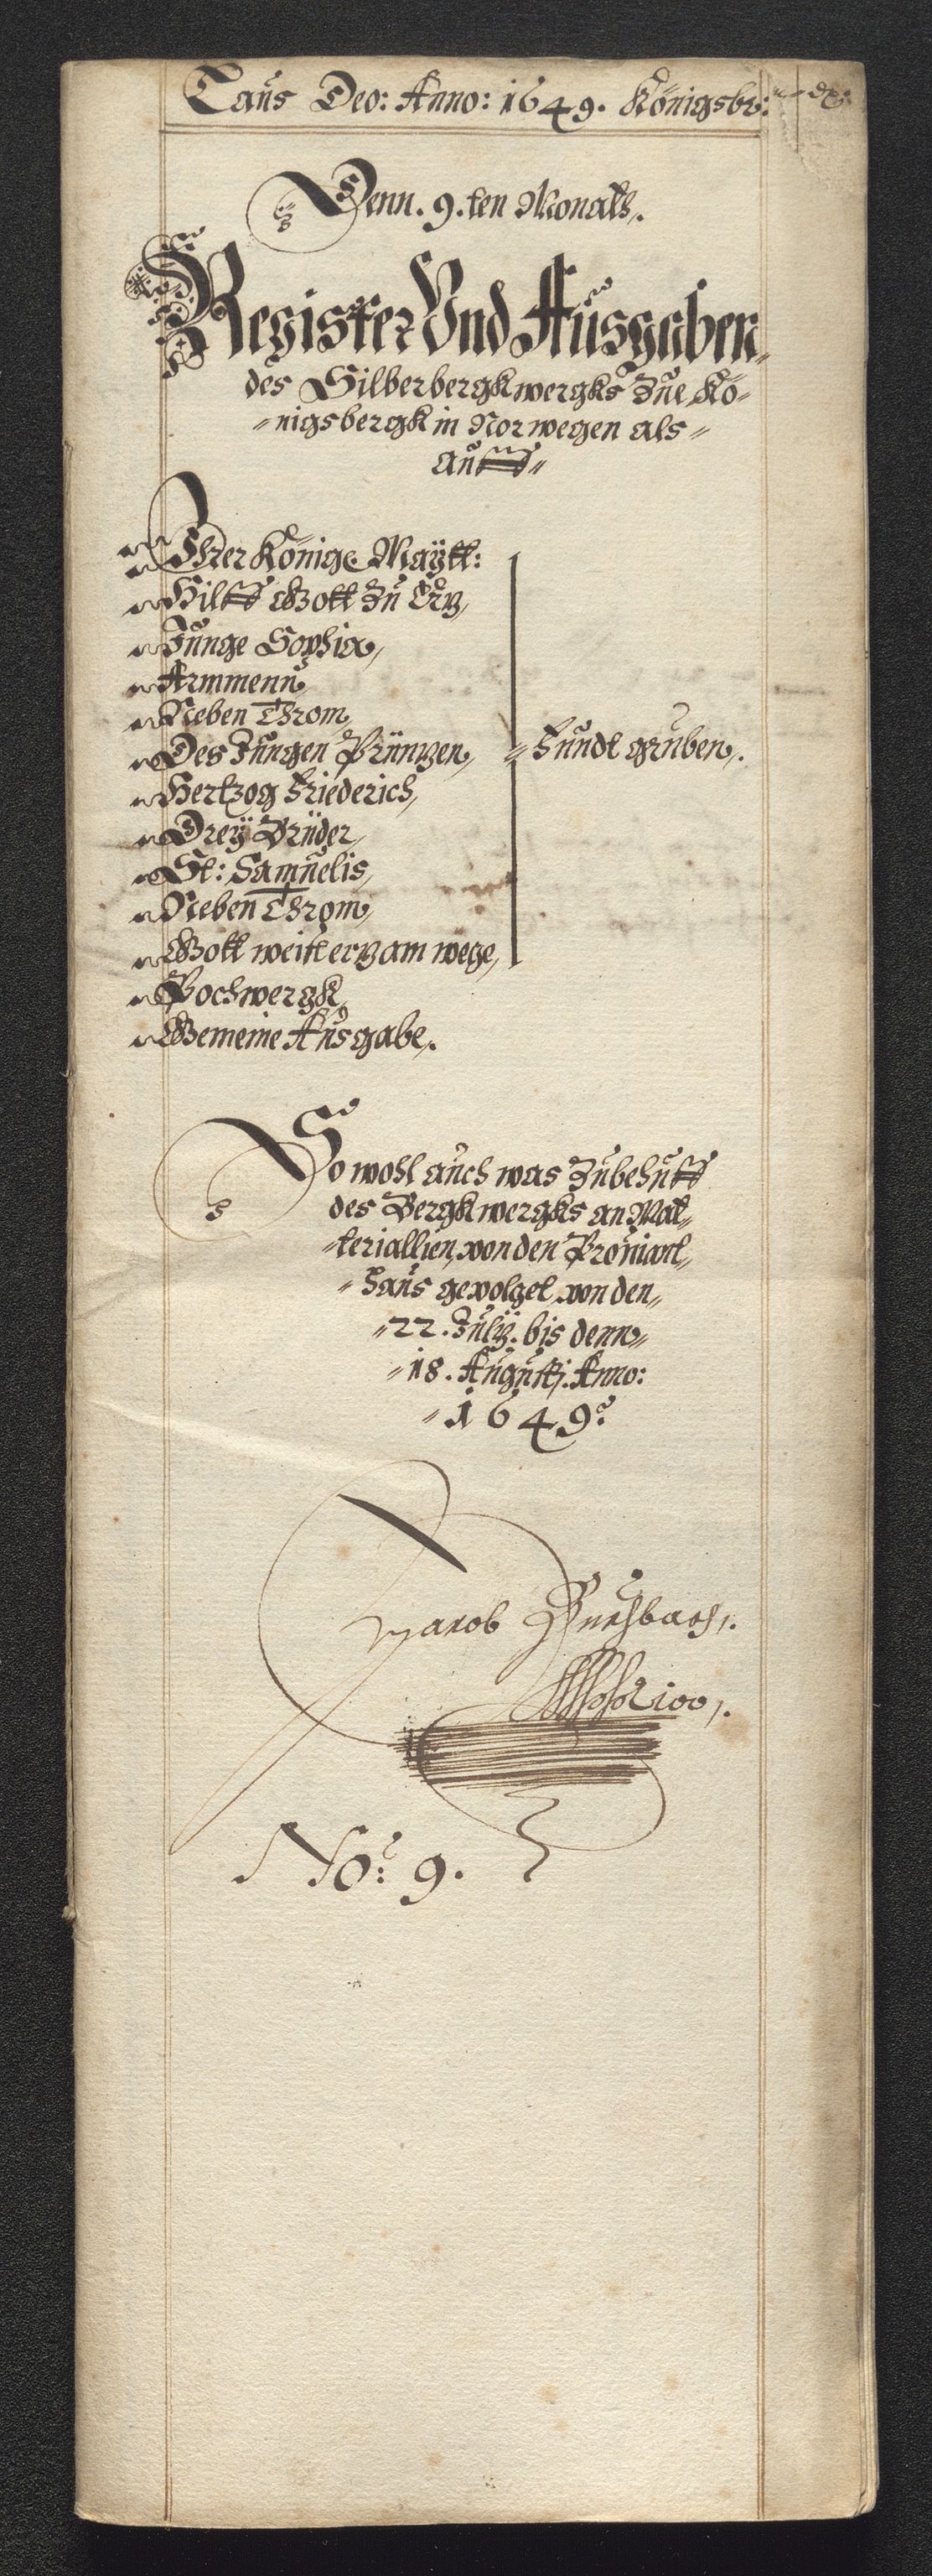 Laus Deo: Anno: 1649. Königsbr:
Denn. 9.ten Monats.
Register Vnd Ausgaben,
des Silberbergkwergks Zue Kö-
nigsbergk in Norwegen als
auff
Ihrer Königl. Maytt:
Hilff Gott Zu Ertz,
Junge Sophia,
Armmenn,
Neben Throm,
Des Jungen Printzen, Fundt gruben.
Hertzog Friederich,
Drey Brüder,
St: Samuelis,
Neben Throm,
Gott weist ertz am wege,
Pochwergk,
Gemeine Ausgabe.
So wohl auch was Zubehuff
des Bergkwergks an Mat-
teriallien, von den Proviant
Haus gevolget, von den
22. July. bis denn
18. Augusti. Anno:
1649.
Jacob
No: 9.